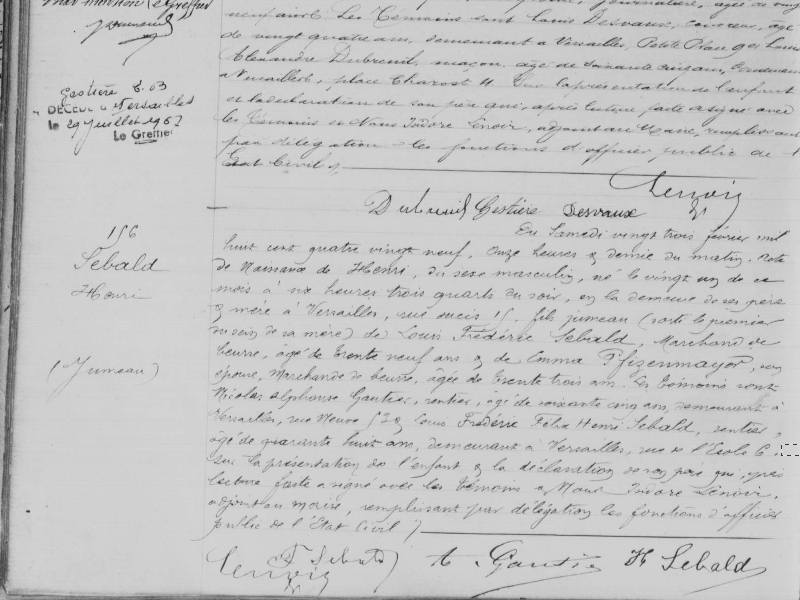 de vingt quatre ans, demeurant à Versailles, Petite Place
Alexandre Dubreuil, maçon, âgé de soixante cinq ans, demeurant
à Versailles, place Charost 4. Sur la présentation de l'enfant
et la déclaration de son père qui, après lecture faite a signé avec
les témoins et Nous Isidore Lenoir, adjoint au Maire, remplissant
par délégation les fonctions d'officier public de l'
Etat Civil
Gestière
DÉCÉDÉ à Versailles
le 29 juillet 1962
Le Greffier
Lenoir
Dubreuil Gestière Desvaux
156
Sebald
Henri
(Jumeau)
Du Samedi vingt trois février mil
huit cent quatre vingt neuf, onze heures & demie du matin. Acte
de Naissance de Henri, du sexe masculin, né le vingt un de ce
mois à six heures trois quarts du soir, en la demeure de ses père
& mère à Versailles, rue 15, fils jumeau (sorti le premier
du sein de sa mère) de Louis Frédéric Sebald, Marchand de
beurre, âgé de trente neuf ans & de Emma Pfizenmayer, son
épouse, Marchande de beurre, âgée de trente trois ans. Les témoins sont
Nicolas Alphonse Gautier, rentier, âgé de soixante cinq ans, demeurant à
Versailles, rue Neuve & Louis Frédéric Félix Henri Sebald, rentier,
âgé de quarante huit ans, demeurant à Versailles, rue de l'Ecole
sur la présentation de l'enfant & la déclaration de son père qui, après
lecture faite a signé avec les témoins & Nous Isidore Lenoir,
adjoint au maire, remplissant par délégation les fonctions d'officier
public de l'Etat Civil
Lenoir F Sebald A. Gautier H Sebald